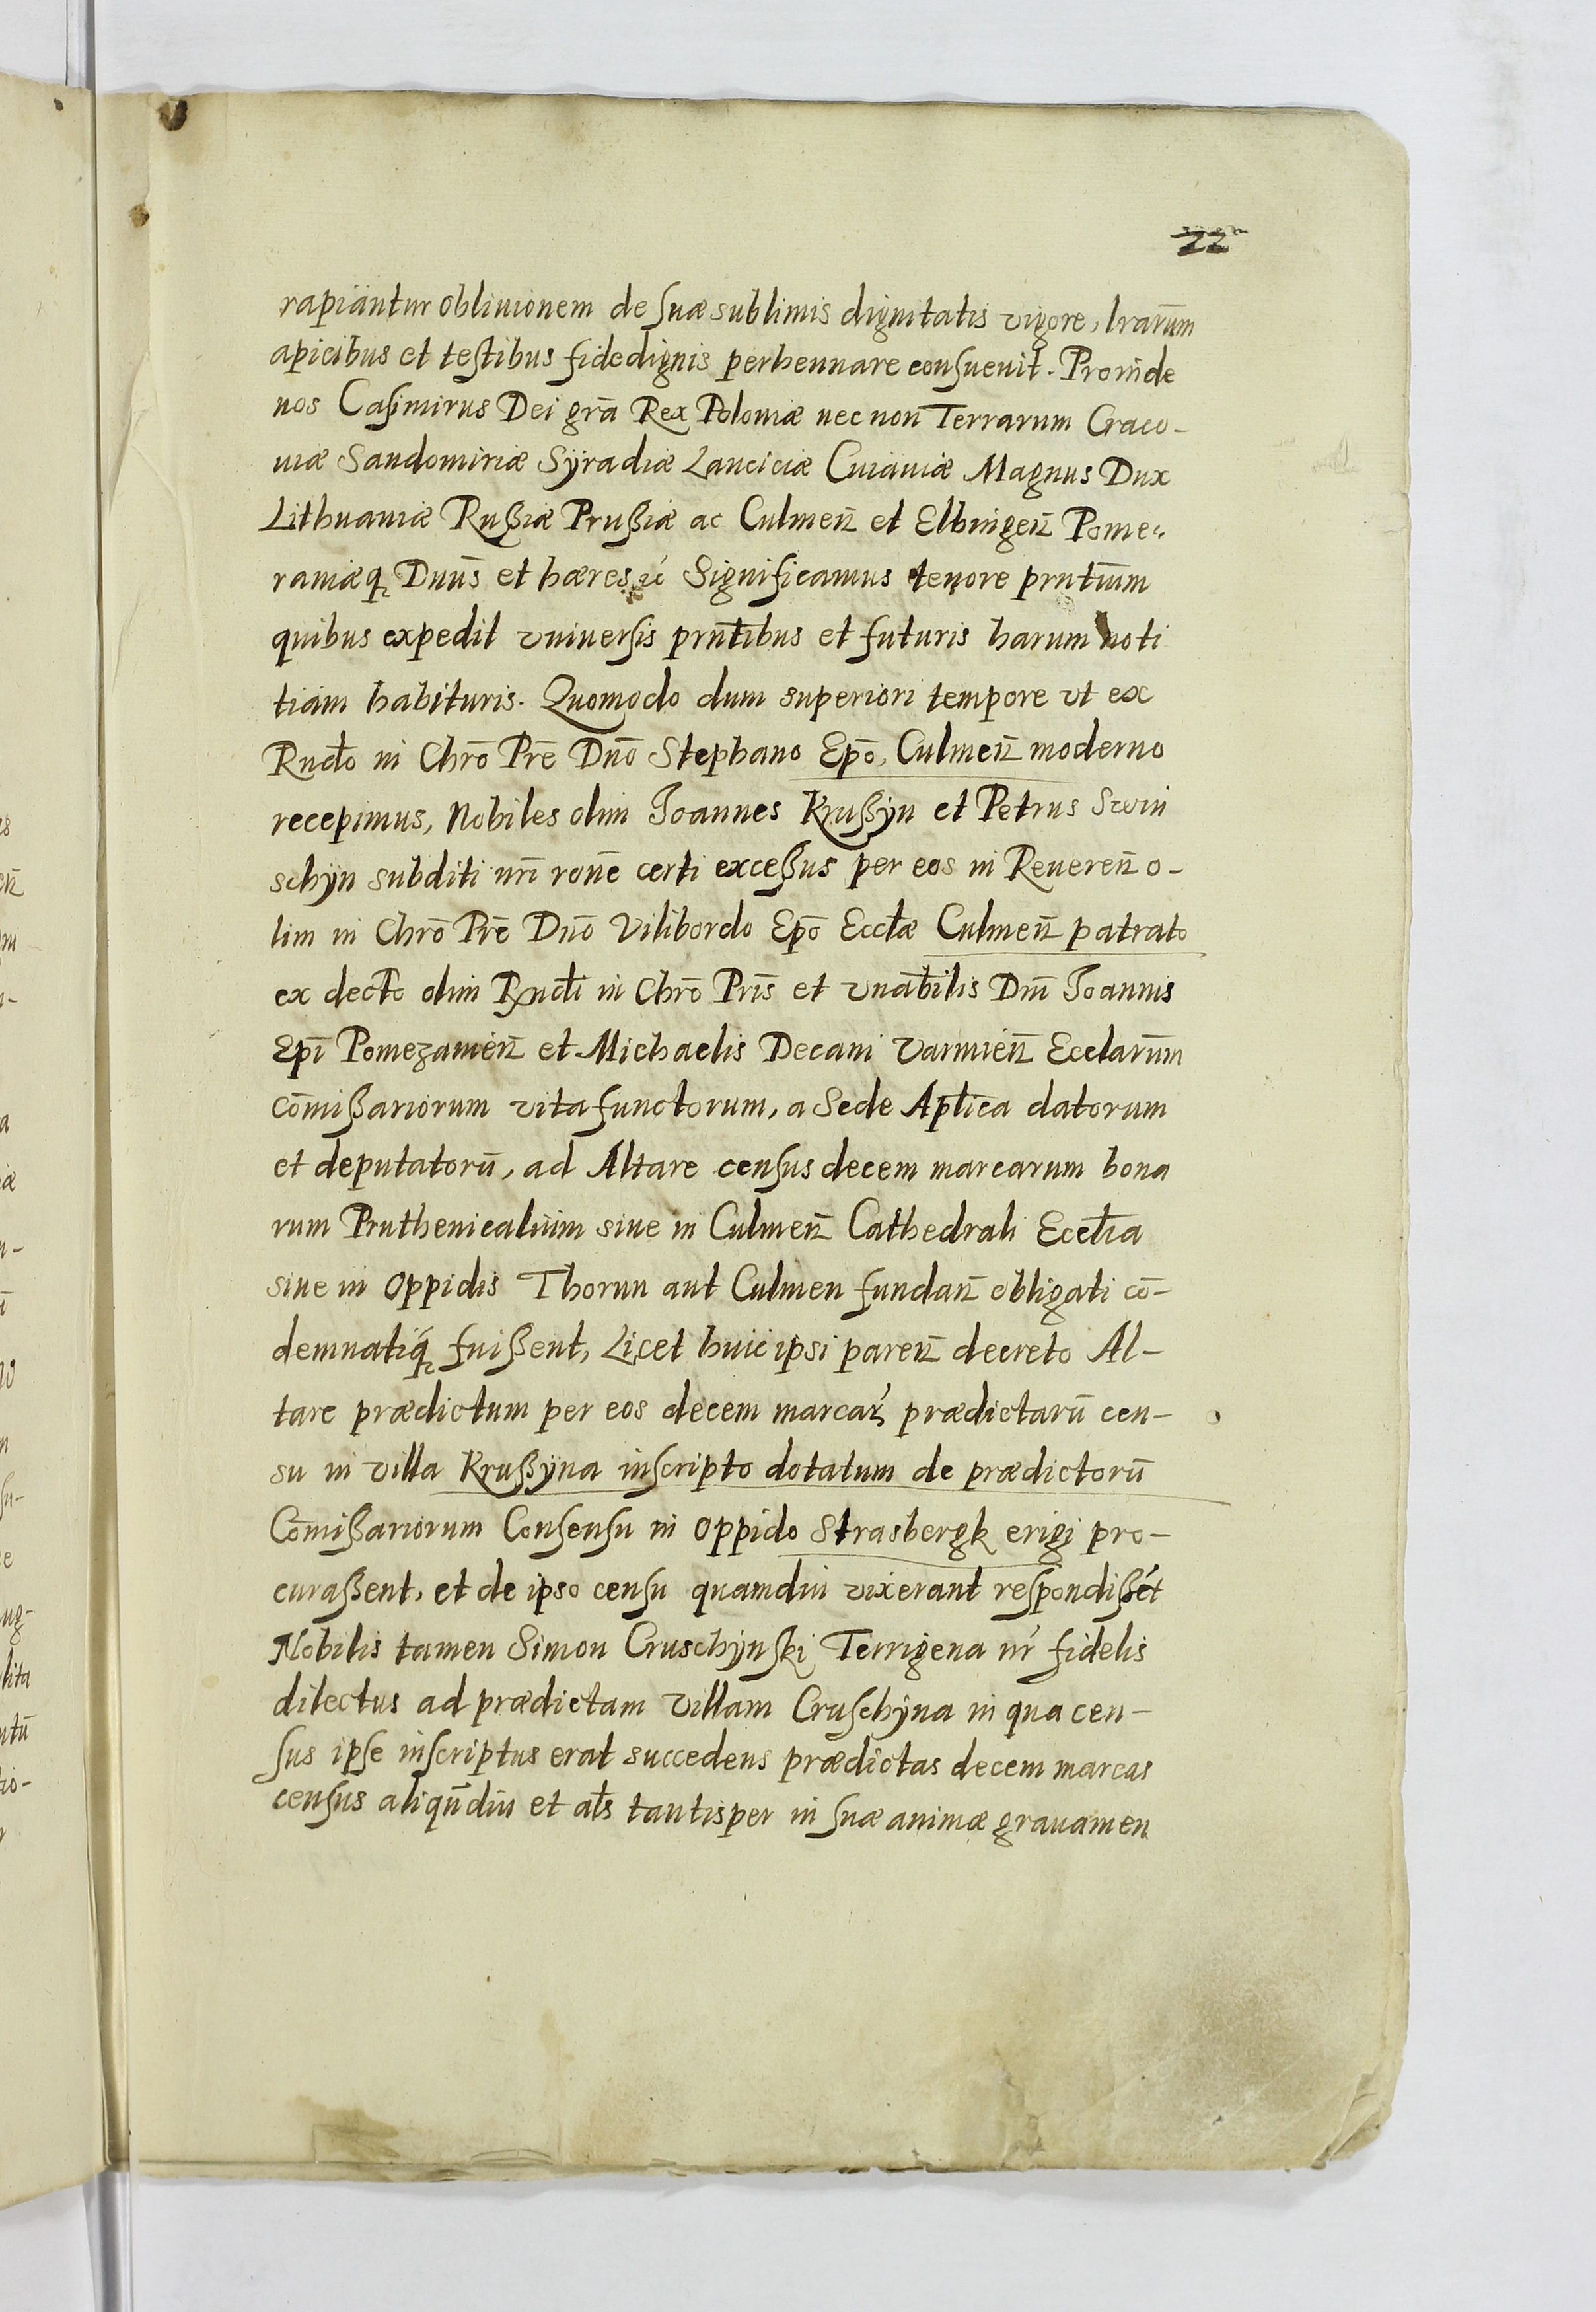 22
rapiantur obliuionem de suæ sublimis dignitatis vigore, lrarūm
apicibus et testibus fidedignis perhennare consueuit. Proinde
nos Casimirus Dei grā Rex Poloniæ nec non Terrarum Craco-
uiæ Sandomiriæ Sÿradiæ Lanciciæ Cuiauiæ Magnus Dux
Lithuaniæ Rußiæ Prußiæ ac Culmen̄ et Elbingen̄ Pome-
raniæq̨ Dnūs et hæres ꝛć Significamus tenore prntiūm
quibus expedit vniuersis prntībus et futuris harum noti
tiam habituris. Quomodo dum superiori tempore vt ex
Rndo in Chrō Prē Dnō Stephano Epō, Culmen̄ moderno
recepimus, Nobiles olim Joannes Krußÿn et Petrus Swin
schÿn subditi nrī ronē certi exceßus per eos in Reueren̄ o-
lim in Chrō Prē Dnō Vilibordo Epō Eccłæ Culmen̄ patrato
ex decto olim Rndi in Chrō Prīs et vnabīlis Dnī Joannis
Epī Pomezanien̄ et Michaelis Decani Varmien̄ Ecclarūm
Cōmißariorum vita functorum, a Sede Aptīca datorum
et deputatorū, ad Altare census decem marcarum bona
rum Pruthenicalium siue in Culmen̄ Cathedrali Eccłia
siue in Oppidis Thorun aut Culmen fundan̄ obligati cō-
demnatiq̨ fuißent, Licet huic ipsi paren̄ decreto Al-
tare prædictum per eos decem marcar̄ prædictarū cen-
su in villa Krußÿna inscripto dotatum de prædictorū
Cōmißariorum Consensu in oppido Strasbergk erigi pro-
curaßent, et de ipso censu quamdiu vixerant respondißēt
Nobilis tamen Simon Cruschÿnski Terrigena nr̄ fidelis
dilectus ad prædictam Villam Cruschÿna in qua cen-
sus ipse inscriptus erat succedens prædictas decem marcas
census aliqūdiu et ałs tantisper in suæ animæ grauamen